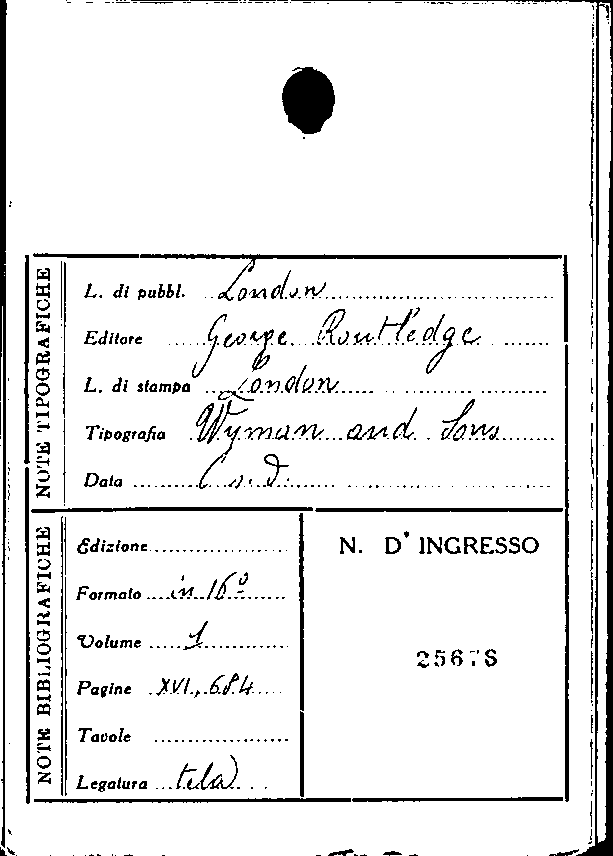 NOTE TIPOGRAFICHE
L. di pubbl. London
Editore George Routledge
L. di stampa London
Tipografia Wyman and Sons
Data (s. d.
NOTE BIBLIOGRAFICHE
Edizione
Formato in 16º
Volume 1
Pagine XVI, 684
Tavole
Legatura tela
N. D' INGRESSO
25678